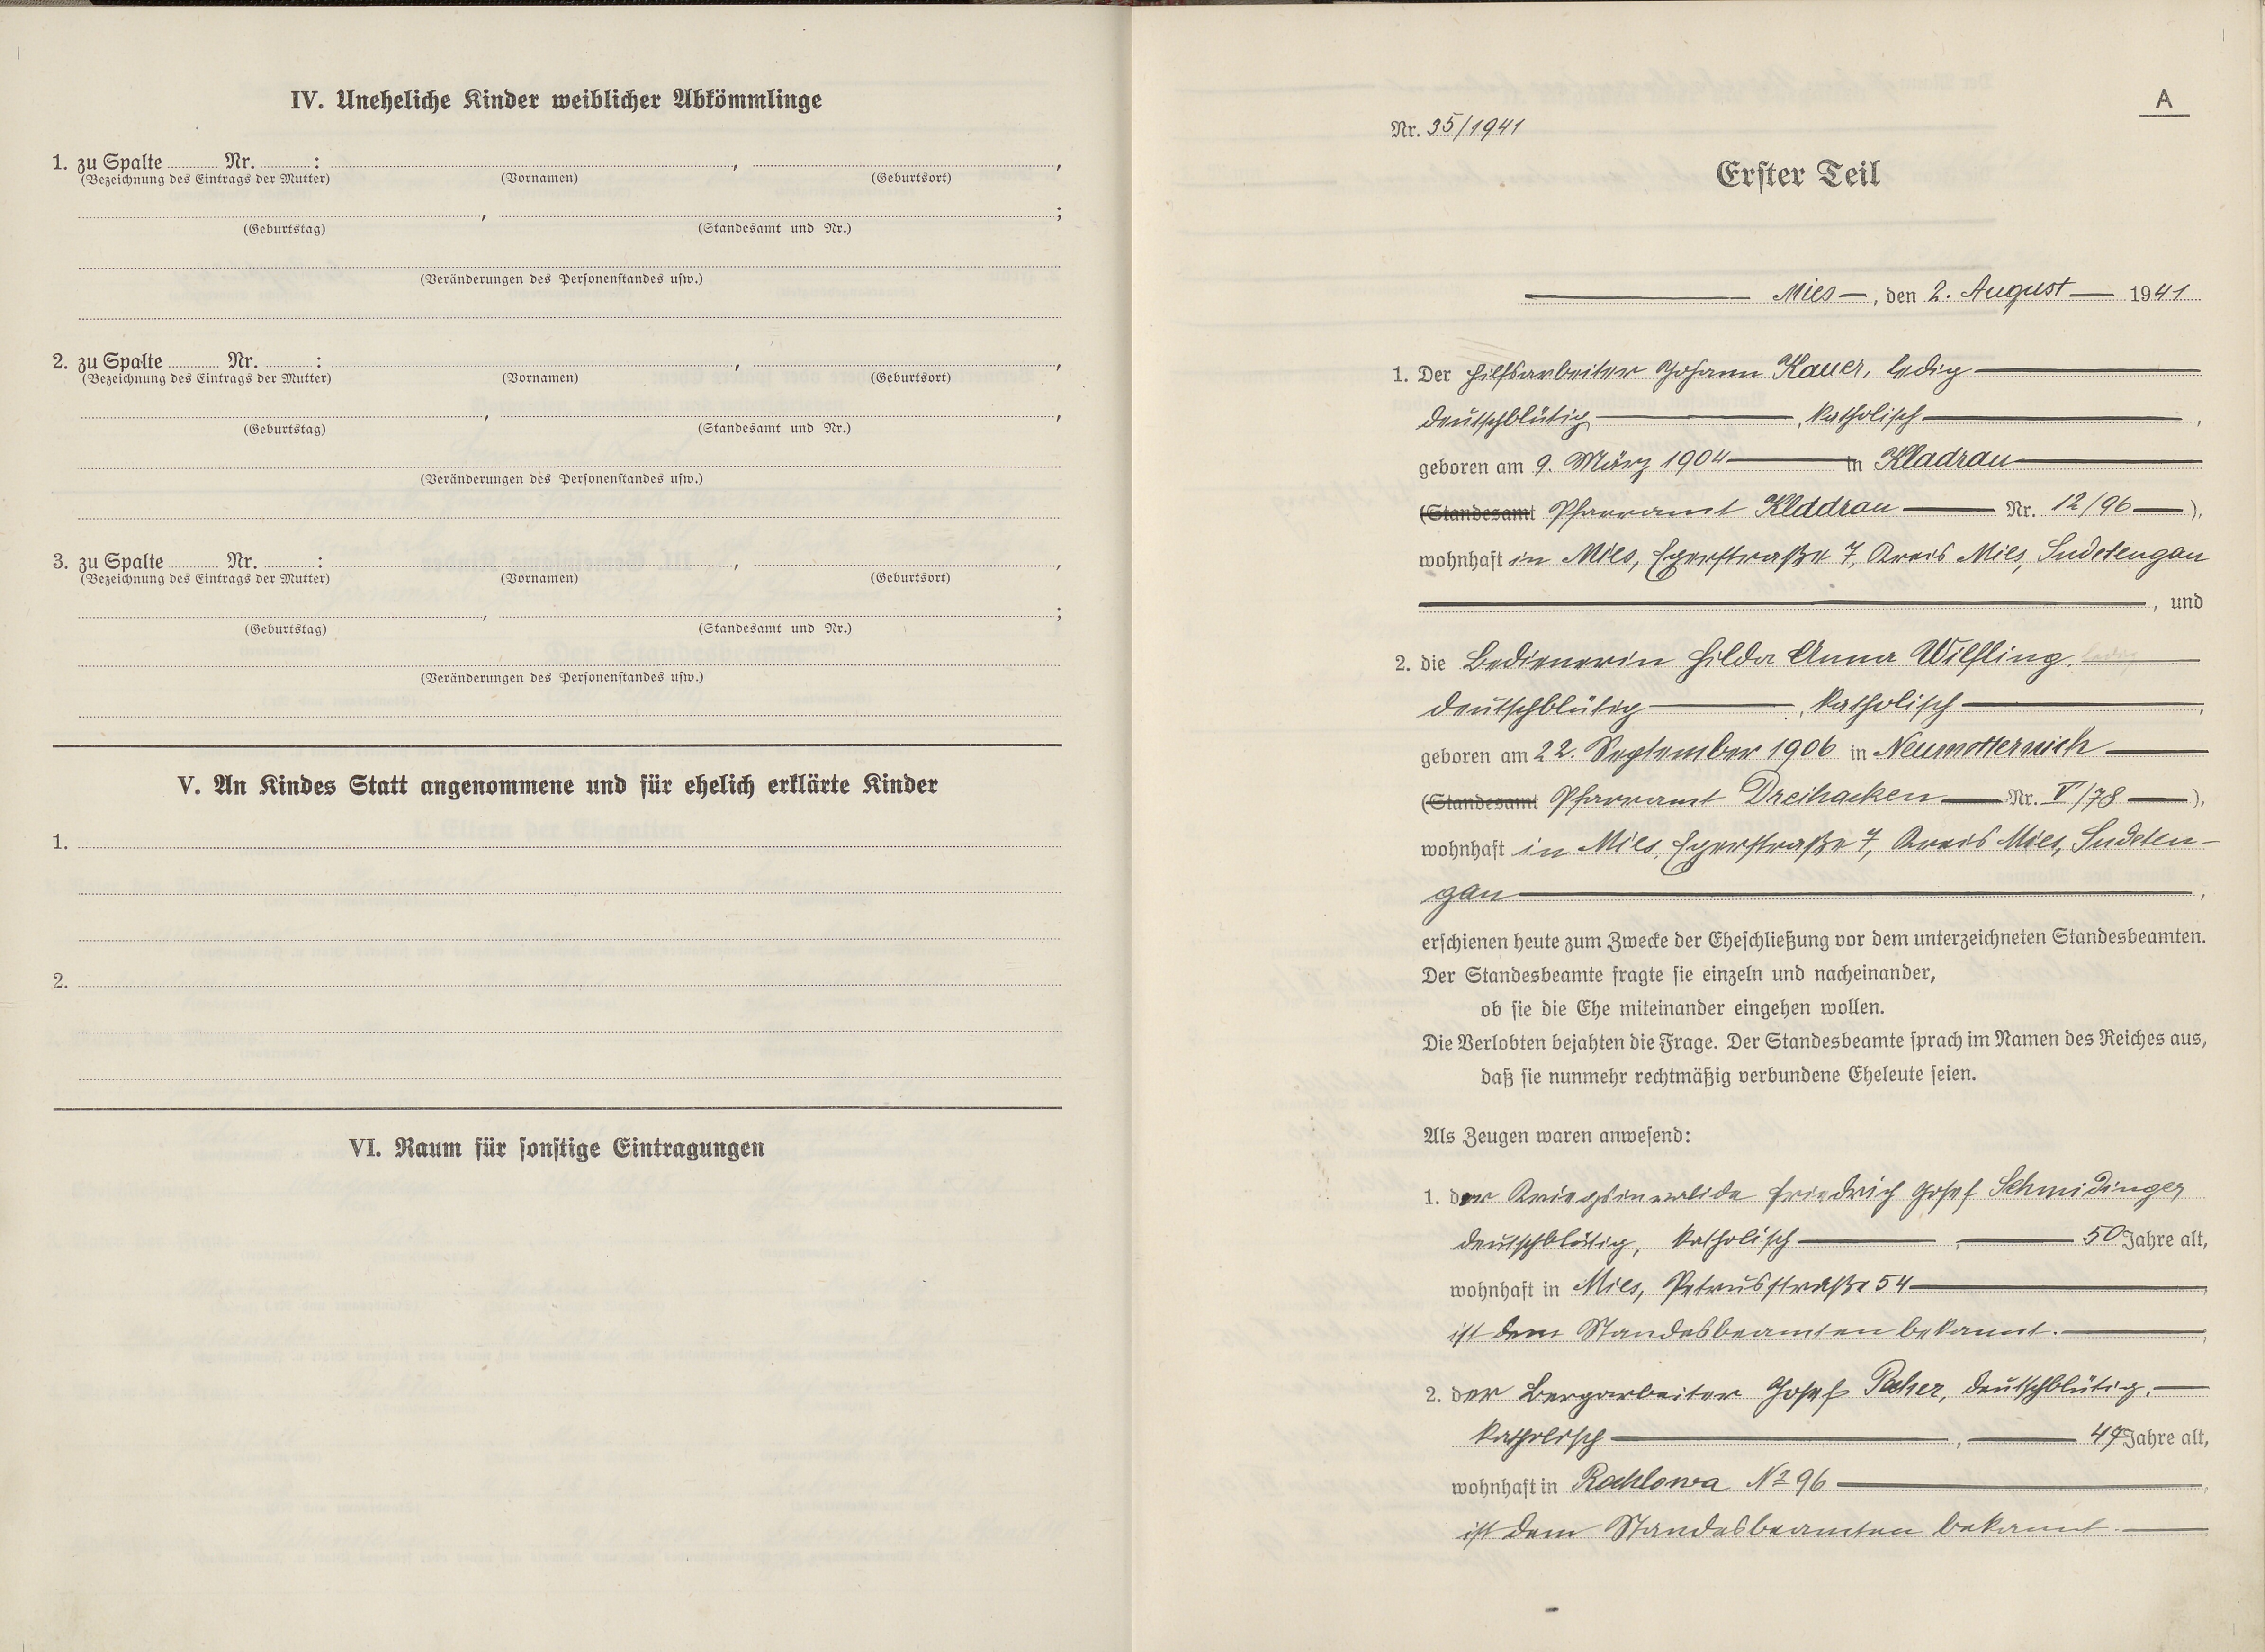 IV. Uneheliche Kinder weiblicher Abkömmlinge
1. zu Spalte Nr. : , ,
(Bezeichnung des Eintrags der Mutter) (Vornamen) (Geburtsort)
, ;
(Geburtstag) (Standesamt und Nr.)
(Veränderungen des Personenstandes usw.)
2. zu Spalte Nr. : , ,
(Bezeichnung des Eintrags der Mutter) (Vornamen) (Geburtsort)
, ,
(Geburtstag) (Standesamt und Nr.)
(Veränderungen des Personenstandes usw.)
3. zu Spalte Nr. : , ,
(Bezeichnung des Eintrags der Mutter) (Vornamen) (Geburtsort)
, ;
(Geburtstag) (Standesamt und Nr.)
(Veränderungen des Personenstandes usw.)
V. An Kindes Statt angenommene und für ehelich erklärte Kinder
1.
2.
VI. Raum für sonstige Eintragungen
A
Nr. 35/1941
Erster Teil
Mies, den 2. August 1941
1. Der Hilfsarbeiter Johann Kauer, ledig
deutschblütig, katholisch,
geboren am 9. März 1904 in Kladrau
(Standesamt Pfarramt Kladrau Nr. 12/96),
wohnhaft in Mies, Egerstraße 7, Kreis Mies, Sudetengau
, und
2. die Bedienerin Hilda Anna Wilfling, ledig
deutschblütig, katholisch,
geboren am 22. September 1906 in Neumetternich
(Standesamt Pfarramt Dreihacken Nr. V/78),
wohnhaft in Mies, Egerstraße 7, Kreis Mies, Sudeten-
gau,
erschienen heute zum Zwecke der Eheschließung vor dem unterzeichneten Standesbeamten.
Der Standesbeamte fragte sie einzeln und nacheinander,
ob sie die Ehe miteinander eingehen wollen.
Die Verlobten bejahten die Frage. Der Standesbeamte sprach im Namen des Reiches aus,
daß sie nunmehr rechtmäßig verbundene Eheleute seien.
Als Zeugen waren anwesend:
1. der Kriegsinvalide Friedrich Josef Schmidinger
deutschblütig, katholisch, 50 Jahre alt,
wohnhaft in Mies, Petrusstraße 54,
ist dem Standesbeamten bekannt.,
2. der Bergarbeiter Josef, deutschblütig,
katholisch, 47 Jahre alt,
wohnhaft in Rochlowa № 96,
ist dem Standesbeamten bekannt.